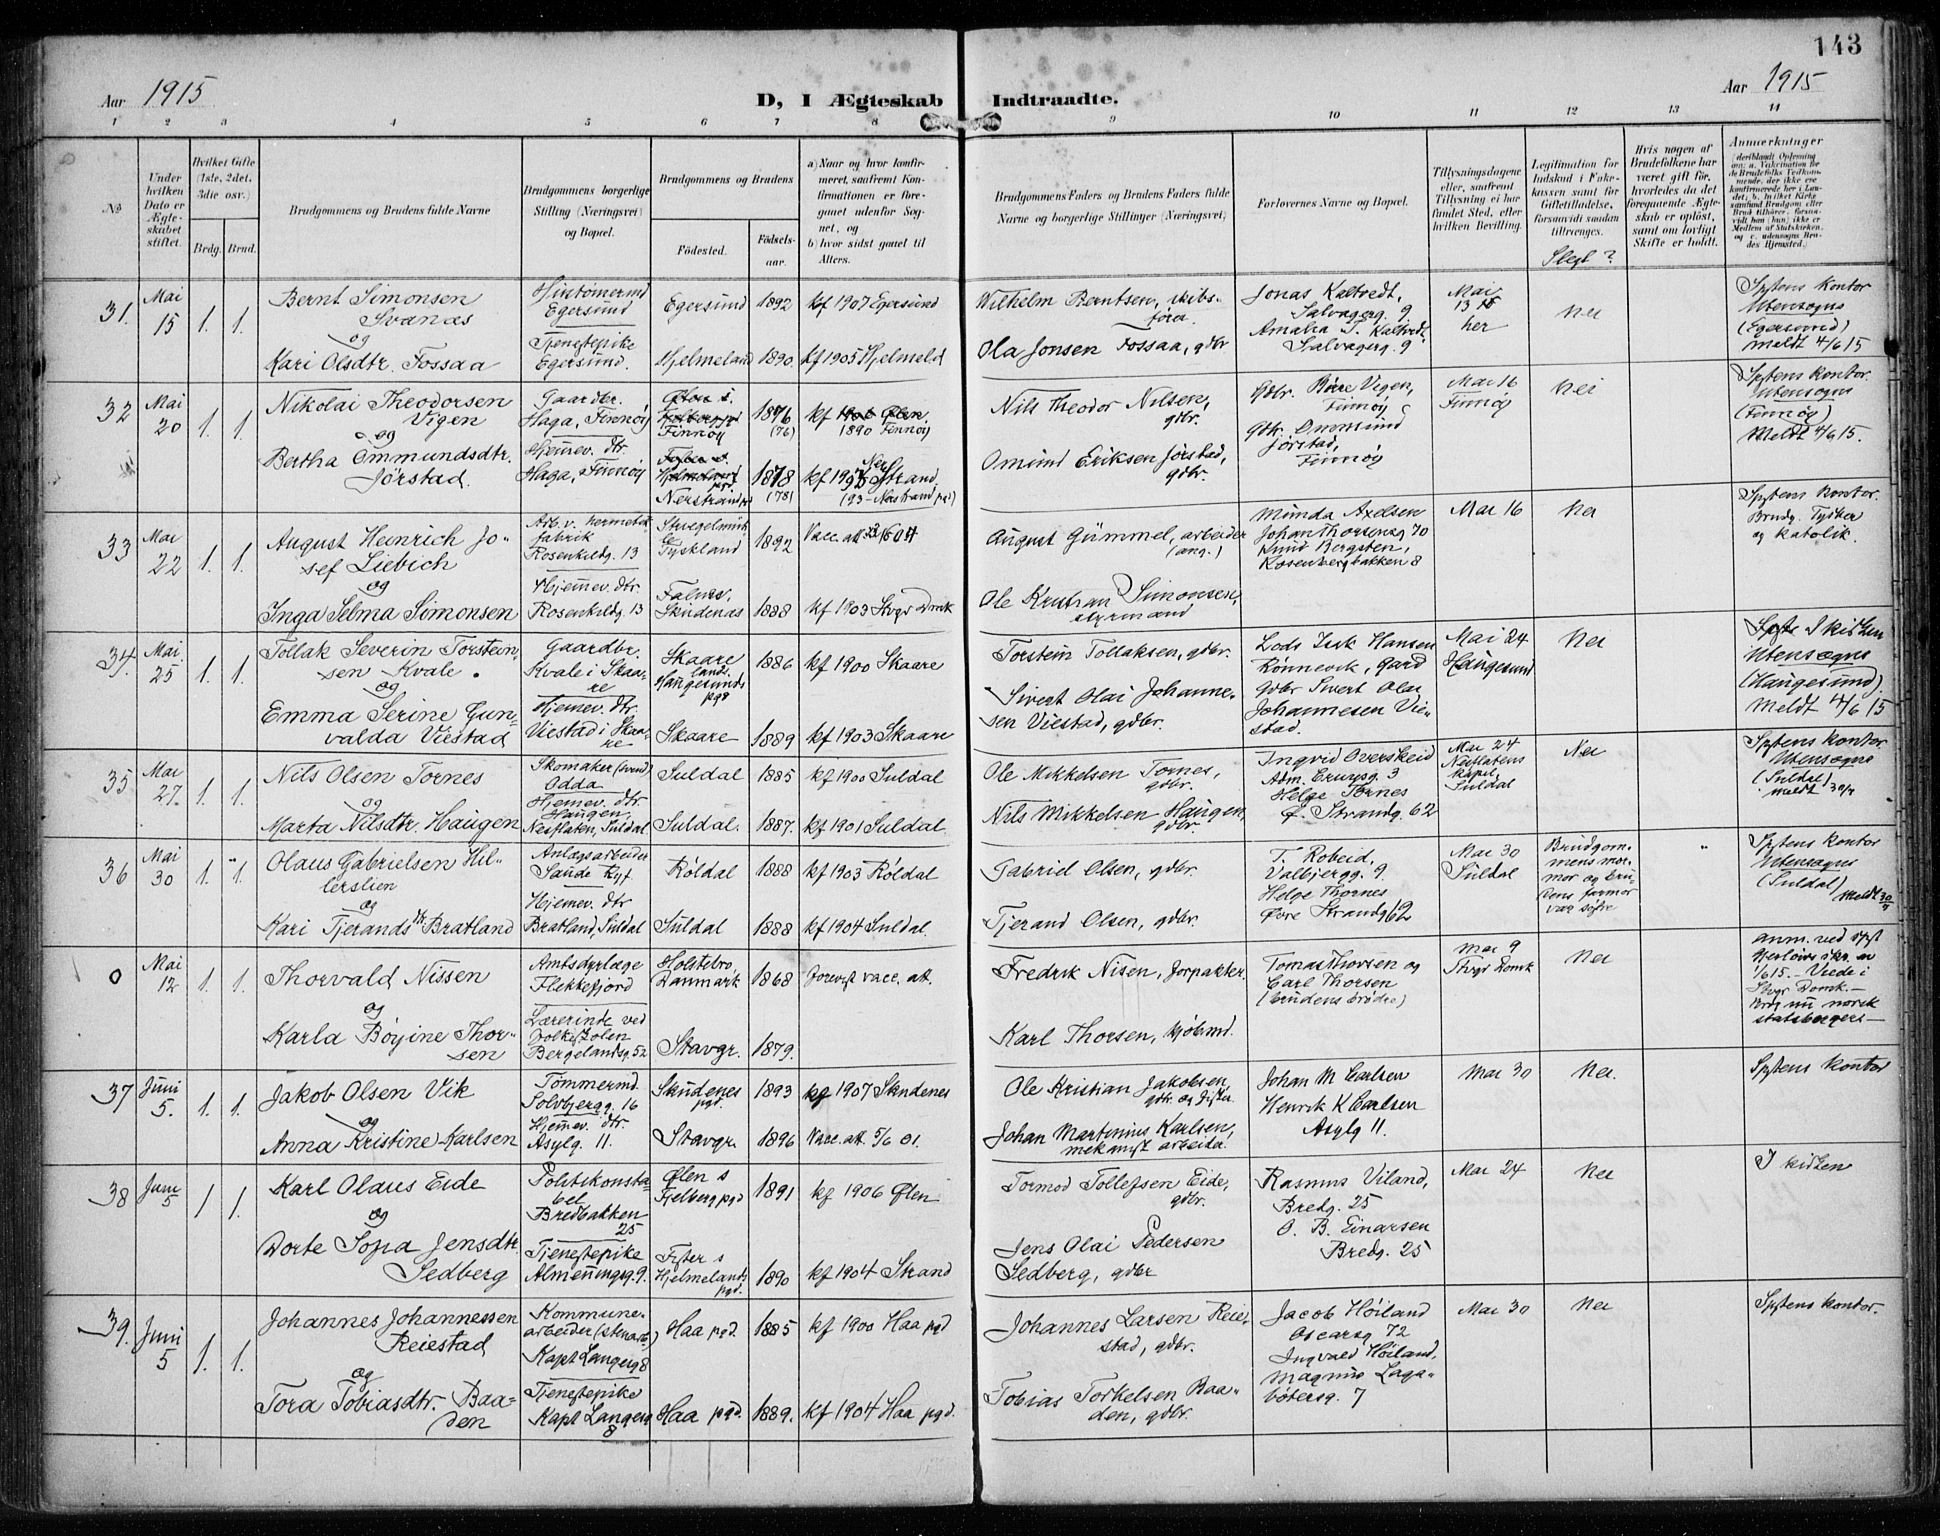 143
Aar 1915
D, I Ægteskab Indtraadte.
Aar 1915
1 2 3 4 5 6 7 8 9 10 11 12 13 14
No
Under hvilken Dato er Ægteskabet stiftet.
Hvilket Gifte (1ste, 2det, 3die osv.)
Brdg. Brud.
Brudgommens og Brudens fulde Navne
Brudgommens borgerlige Stilling (Næringsvei) og Bopæl.
Brudgommens og Brudens
Fødested.
Fødselsaar.
a) Naar og hvor konfirmeret, saafremt Konfirmationen er foregaaet udenfor Sognet, og
b) hvor sidst gaaet til Alters.
Brudgommens Faders og Brudens Faders fulde Navne og borgerlige Stillinger (Næringsvei)
Forlovernes Navne og Bopæl.
Tillysningsdagene eller, saafremt Tillysning ei har fundet Sted, efter hvilken Bevilling.
Legitimation for Indskud i Enkekassen samt for Giftetilladelse, forsaavidt saadan tiltrænges.
Slegt?
Hvis nogen af Brudefolkene har været gift før, hvorledes da det foregaaende Ægteskab er opløst, samt om lovligt Skifte er holdt.
Anmerkninger
31. Mai 15 1. 1.
Bernt Simonsen Svanæs
og
Kari Olsdtr. Fossaa
Egersund
Tjenestepike
Egersund.
Egersund 1892 kf 1907 Egersund
Hjelmeland 1890. kf 1905 Hjelmeld
Wilhelm Berntsen, skibsfører
Ola Jonsen Fossaa, gdbr
Jonas Kaltvedt,
Salvagerg. 9
Amalia T. Kaltvedt
Salvagerg. 9
Mai 13
her
nei
Sptens kontor
Utensogns
(Egersund)
meldt 4/6 15
32 Mai 20 1. 1.
Nikolai Theodorsen Vigen
og
Bertha Ommundsdtr. Jørstad.
Gaardbr.
Haga, Finnøy
Hjemev. dtr.
Haga, Finnøy
Finnøy 1876 (76) kf 1890 Finnøy
Nerstrand pgd 1878 (78) (93 - Nerstrand pgd)
Nils Theodor Nilsen, gdbr.
Omund Eriksen Jørstad, gdbr.
Gdbr. Børre Vigen,
Finnøy
Gdbr. Ommund
Jørstad,
Finnøy
Mai 16
Finnøy
nei
Sptens kontor.
Utensogns
(Finnøy)
Meldt 4/6 15.
33 Mai 22 1. 1.
August Heinrich Josef Liebich
og
Inga Selma Simonsen
Arb. v. hermetikfabrik
Rosenkildg. 13
Hjemev. dtr.
Rosenkildg. 13
Tyskland 1892
Falnes, Skudenæs 1888 kf 1903 Stvgr Domk
August Gümmel, arbeider
(ang.)
Ole Kristian Simonsen,
styrmand
Munda Axelsen
Johan Thorsensg 70
Knud Bergsten,
Rosenbergbakken 8
Mai 16
nei
Sptens kontor.
Brudg. Tysker
og katolik.
34. Mai 25 1. 1.
Tollak Severin Torsteinsen Kvale.
og
Emma Serine Gunvalda Viestad
Gaardbr.
Kvale i Skaare
Hjemev. dtr.
Viestad i Skaare
Skaare lands. Haugesunds pgd 1886 kf 1900 Skaare
Skaare 1889 kf 1903 Skaare
Torstein Tollaksen, gdbr.
Sivert Olai Johannesen Viestad, gdbr.
Lods Isak Hansen
Rønnevik, gard
Gdbr Sivert Olai
Johannesen Viestad.
Mai 24
Haugesund
Nei
I kirken
Utensogns
(Haugesund)
Meldt 4/6 15
35 Mai 27. 1. 1.
Nils Olsen Tornes
og
Marta Nilsdtr. Haugen
Skomaker (svend)
Odda
Hjemev. dtr.
Haugen,
Nesflaten, Suldal
Suldal 1885 kf 1900 Suldal
Suldal. 1887. kf 1901 Suldal.
Ole Mikkelsen Tornes, gdbr.
Nils Mikkelsen Haugen, gdbr.
Ingvid Overskeid
Adm. Cruysg. 3
Helge Tornes
Ø. Strandg. 62
Mai 24
Nesflatens kapel,
Suldal
Nei
Sptens kontor
Utensogns
(Suldal)
36 Mai 30 1. 1.
Olaus Gabrielsen Hillerslien
og
Kari Tjerandsdtr Bratland
Anlægsarbeider
Saude Ryf.
Hjemev. dtr
Bratland, Suldal
Røldal 1888 kf 1903 Røldal
Suldal 1888 kf 1904 Suldal.
Gabriel Olsen, gdbr.
Tjerand Olsen, gdbr.
T. Robeid,
Valbjergg. 9.
Helge Thornes
Øvre Strandg 62
Mai 30
Suldal
Brudgommens mormor og brudens farmor var søstre
Sptens kontor
Utensogns
(Suldal)
0 Mai 12 1. 1.
Thorvald Nissen
og
Karla Bøyine Thorsen
Amtsdyrlæge
Flekkefjord
Lærerinde ved
folkeskolen
Bergelandsg. 52
Holstebro, Danmark 1868 forevist vacc. att.
Stavgr. 1879.
Fredrik Nisen, forpakter.
Karl Thorsen, kjøbmd.
Tomas Thorsen og
Carl Thorsen
(brudens brødre)
Mai 9
Stvgr Domk
Nei
1/6 15. - Viede i
Stvgr Domk. -
Brdg nu norsk
statsborger -
37 Juni 5. 1. 1.
Jakob Olsen Vik
og
Anna Kristine Karlsen
Tømmermd.
Solvbjergg. 16
Hjemev. dtr.
Asylg. 11.
Skudenes pgd. 1893 kf 1907 Skudenes
Stavgr. 1896 Vacc. att. 5/6 01.
Ole Kristian Jakobsen,
gdbr. og fisker.
Johan Martinius Karlsen,
mekanisk arbeider.
Johan M Carlsen
Henrik K Carlsen
Asylg 11.
Mai 30
Nei.
Sptens kontor
38 Juni 5 1 1.
Karl Olaus Eide
og
Dorte Sofia Jensdtr. Sedberg
Politikonstabel
Bredbakken 25
Tjenestepike
Almenningsg. 9.
Ølen s Fjelberg pgd 1891 kf 1906 Ølen
Fister s Hjelmelands pgd. 1890 kf 1904 Strand
Tormod Tollefsen Eide, gdbr.
Jens Olai Pedersen
Sedberg, gdbr
Rasmus Viland,
Bredg. 25
O. B. Einarsen
Bredg. 25
Mai 24
Nei
I kirken
39. Juni 5 1. 1.
Johannes Johannessen Reiestad
og
Tora Tobiasdtr. Baaden
Kommunearbeider (stenarb)
Kapt Langesg 8
Tjenestepike
Kapt Langesg 8
Haa pgd. 1885 kf 1900 Haa pgd
Haa pgd. 1889. kf 1904 Haa pgd.
Johannes Larsen Reiestad, gdbr.
Tobias Torkelsen Baaden, gdbr.
Jacob Høiland
Oscarsg 72
Ingvald Høiland,
Magnus Lagabøtersg. 7
Mai 30
Nei
Sptens kontor.